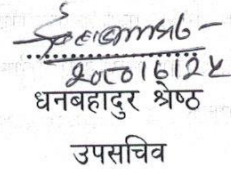 २०८०।६।२५
धनबहादुर श्रेष्ठ
उपसचिव